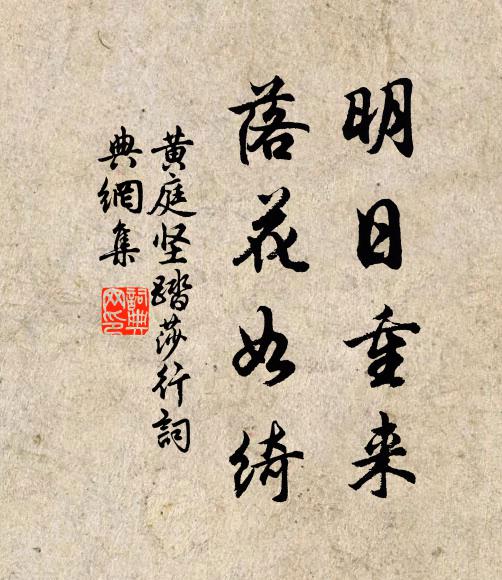 明日重来
落花如绮
黄庭坚踏莎行詞
典網集
詞典網印